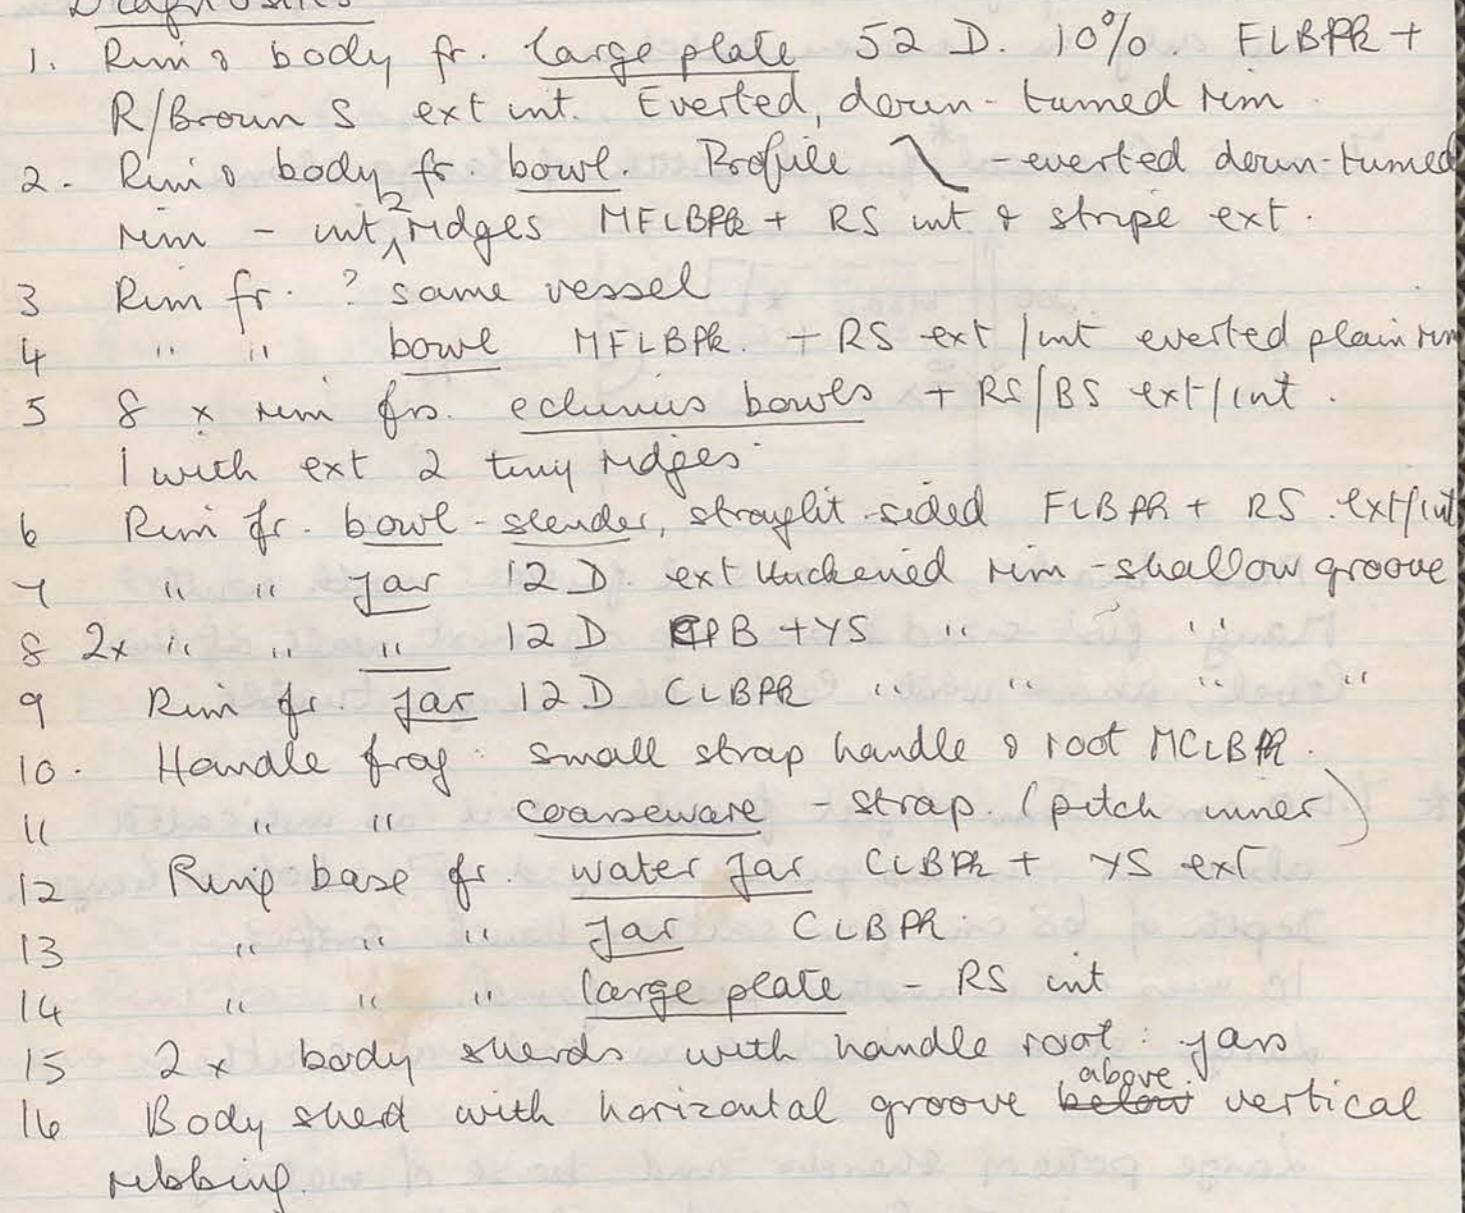 Diagnostics
1. Rim & body fr. large plate 52 D. 10%. FLBPR +
R/Brown S ext int. Everted, down-turned rim.
2. Rim & body fr. bowl. Profile - everted down-turned
rim - int 2 ridges MFLBPR + RS int & stripe ext.
3 Rim fr. ? same vessel
4 " " bowl MFLBPR. + RS ext/int everted plain rim
5 8 x rim frs. echinus bowls + RS/BS ext/int.
1 with ext 2 tiny ridges
6 Rim fr. bowl - slender, straight-sided FLBPR + RS ext/int
7 " " Jar 12 D. ext thickened rim - shallow groove
8 2x " " " 12 D PB + YS " "
9 Rim fr. Jar 12 D CLBPR " " " "
10. Handle frag: small strap handle & root MCLBPR.
11 " " coarseware - strap. (pitch inner)
12 Ring base fr. water Jar CLBPR + YS ext
13 " " " Jar CLBPR.
14 " " " large plate - RS int
15 2 x body sherds with handle root: jars
16 Body sherd with horizontal groove below above vertical
ribbing.